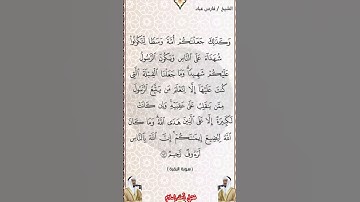 الشيخ / فارس عباد
وَكَذَٰلِكَ جَعَلْنَاكُمْ أُمَّةً وَسَطًا لِتَكُونُوا
شُهَدَاءَ عَلَى النَّاسِ وَيَكُونَ الرَّسُولُ
عَلَيْكُمْ شَهِيدًا وَمَا جَعَلْنَا الْقِبْلَةَ الَّتِي
كُنتَ عَلَيْهَا إِلَّا لِنَعْلَمَ مَن يَتَّبِعُ الرَّسُولَ
مِمَّن يَنقَلِبُ عَلَىٰ عَقِبَيْهِ وَإِن كَانَتْ
لَكَبِيرَةً إِلَّا عَلَى الَّذِينَ هَدَى اللَّهُ وَمَا كَانَ
اللَّهُ لِيُضِيعَ إِيمَانَكُمْ إِنَّ اللَّهَ بِالنَّاسِ
لَرَءُوفٌ رَّحِيمٌ
(سورة البقرة)